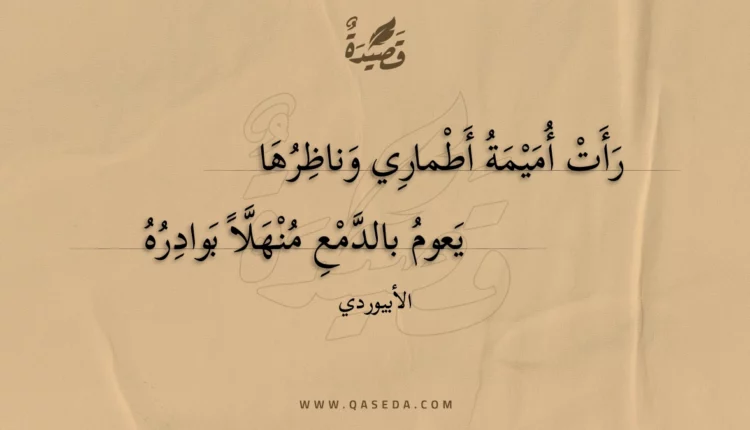 قَصِيدَةٌ
رَأَتْ أُمَيْمَةُ أَطْمارِي وَناظِرُهَا
يَعومُ بالدَّمْعِ مُنْهَلَّاً بَوادِرُهُ
الأبيوردي
WWW.QASEDA.COM